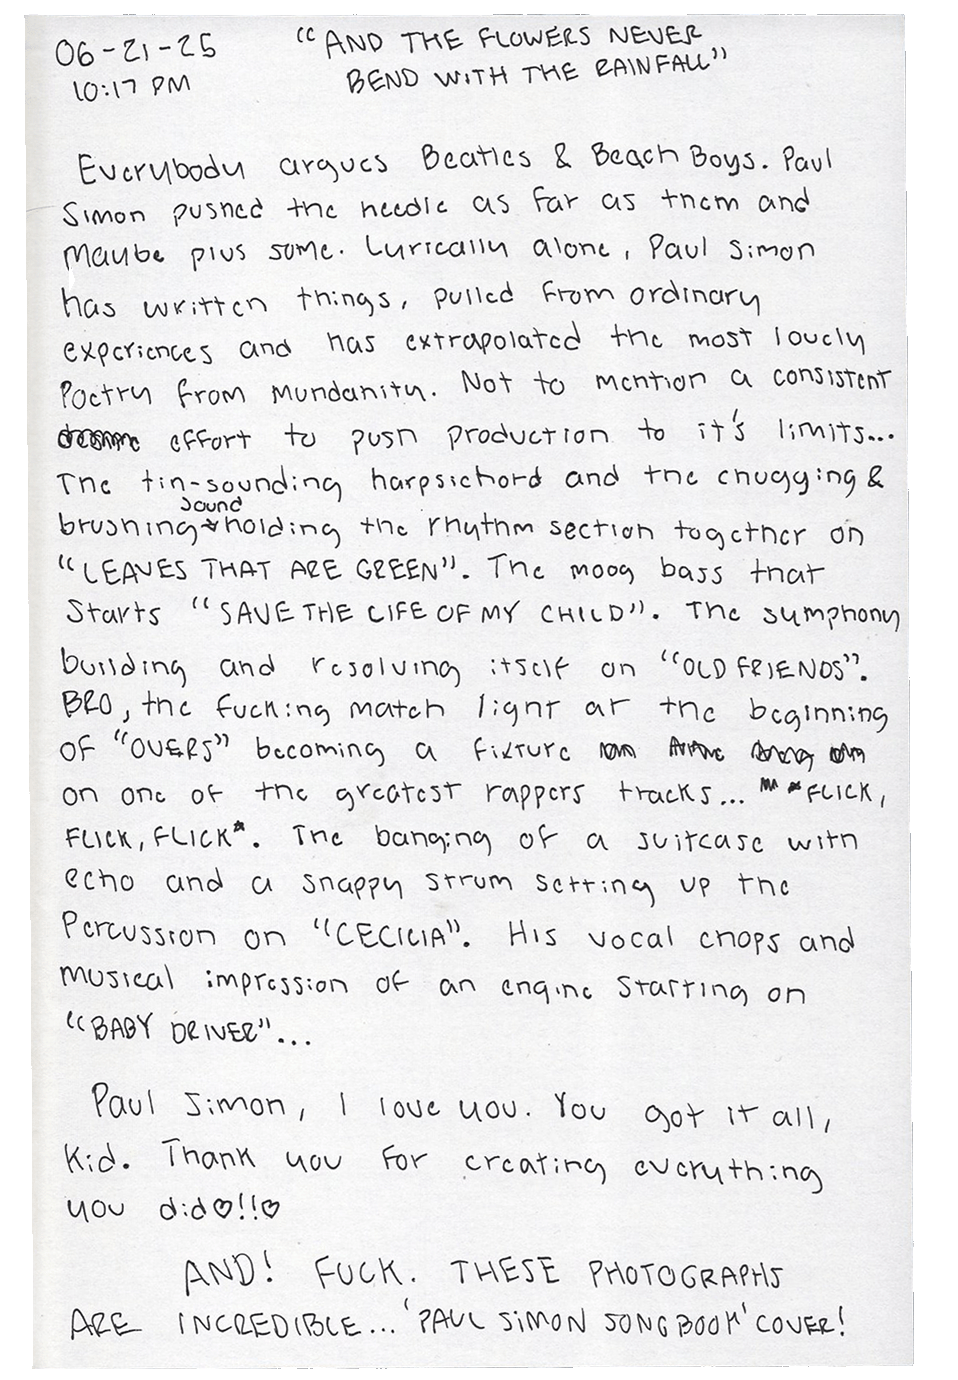 06-21-25 "AND THE FLOWERS NEVER
10:17 PM BEND WITH THE RAINFALL"
Everybody argues Beatles & Beach Boys. Paul
Simon pushed the needle as far as them and
maybe plus some. Lyrically alone, Paul Simon
has written things, pulled from ordinary
experiences and has extrapolated the most lovely
poetry from mundanity. Not to mention a consistent
effort to push production to it's limits...
The tin-sounding harpsichord and the chugging &
brushing sound holding the rhythm section together on
"LEAVES THAT ARE GREEN". The moog bass that
starts "SAVE THE LIFE OF MY CHILD". The symphony
building and resolving itself on "OLD FRIENDS".
BRO, the fucking match light at the beginning
OF "OVERS" becoming a fixture
on one of the greatest rappers tracks... *FLICK,
FLICK, FLICK*. The banging of a suitcase with
echo and a snappy strum setting up the
percussion on "CECILIA". His vocal chops and
musical impression of an engine starting on
"BABY DRIVER"...
Paul Simon, I love you. You got it all,
kid. Thank you for creating everything
you did♡!!♡
AND! FUCK. THESE PHOTOGRAPHS
ARE INCREDIBLE... 'PAUL SIMON SONGBOOK' COVER!